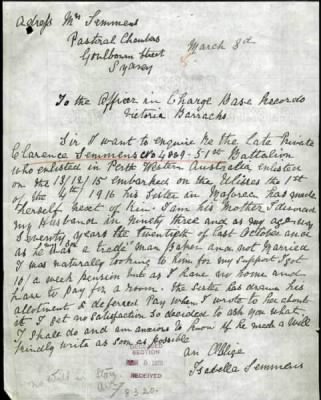 Adress Mrs Semmens
Pastoral Chambers
Goulbourn Street
Sydney
March 3d
To the Officer in Charge Base Records
Victoria Barracks
Sir I want to enquire Re the Late Private
Clarence Semmens No 4889 - 51st Battalion
who enlisted in Perth Western Australia enlisted
on the 13/12/15 embarked on the Ulises the 1st
the 4th/1916 his Sister in has made
herself next of kin. I am his Mother I
my Husband in Ninety three and as my age
Seventy years the twentyth of last October and
as he was a trade man Baker and not Married
I was naturally looking to him for my Support I got
10/ a week pension but as I have no home and
have to pay for a room. the Sister has drawn his
allotment & deferred Pay when I wrote to her about
it I get no Satisfaction So decided to ask you what
I Shall do and am anxious to know if he made a Will
Kindly write as soon as possible
an Oblige
Isabella Semmens
SECTION
RECEIVED
No Will in
8.3.20